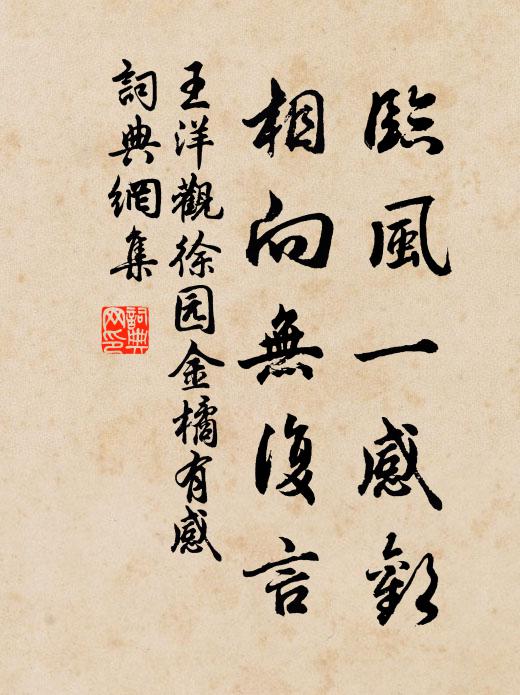 臨風一感歎
相向無復言
王洋觀徐园金橘有感
詞典網集
詞典
网印